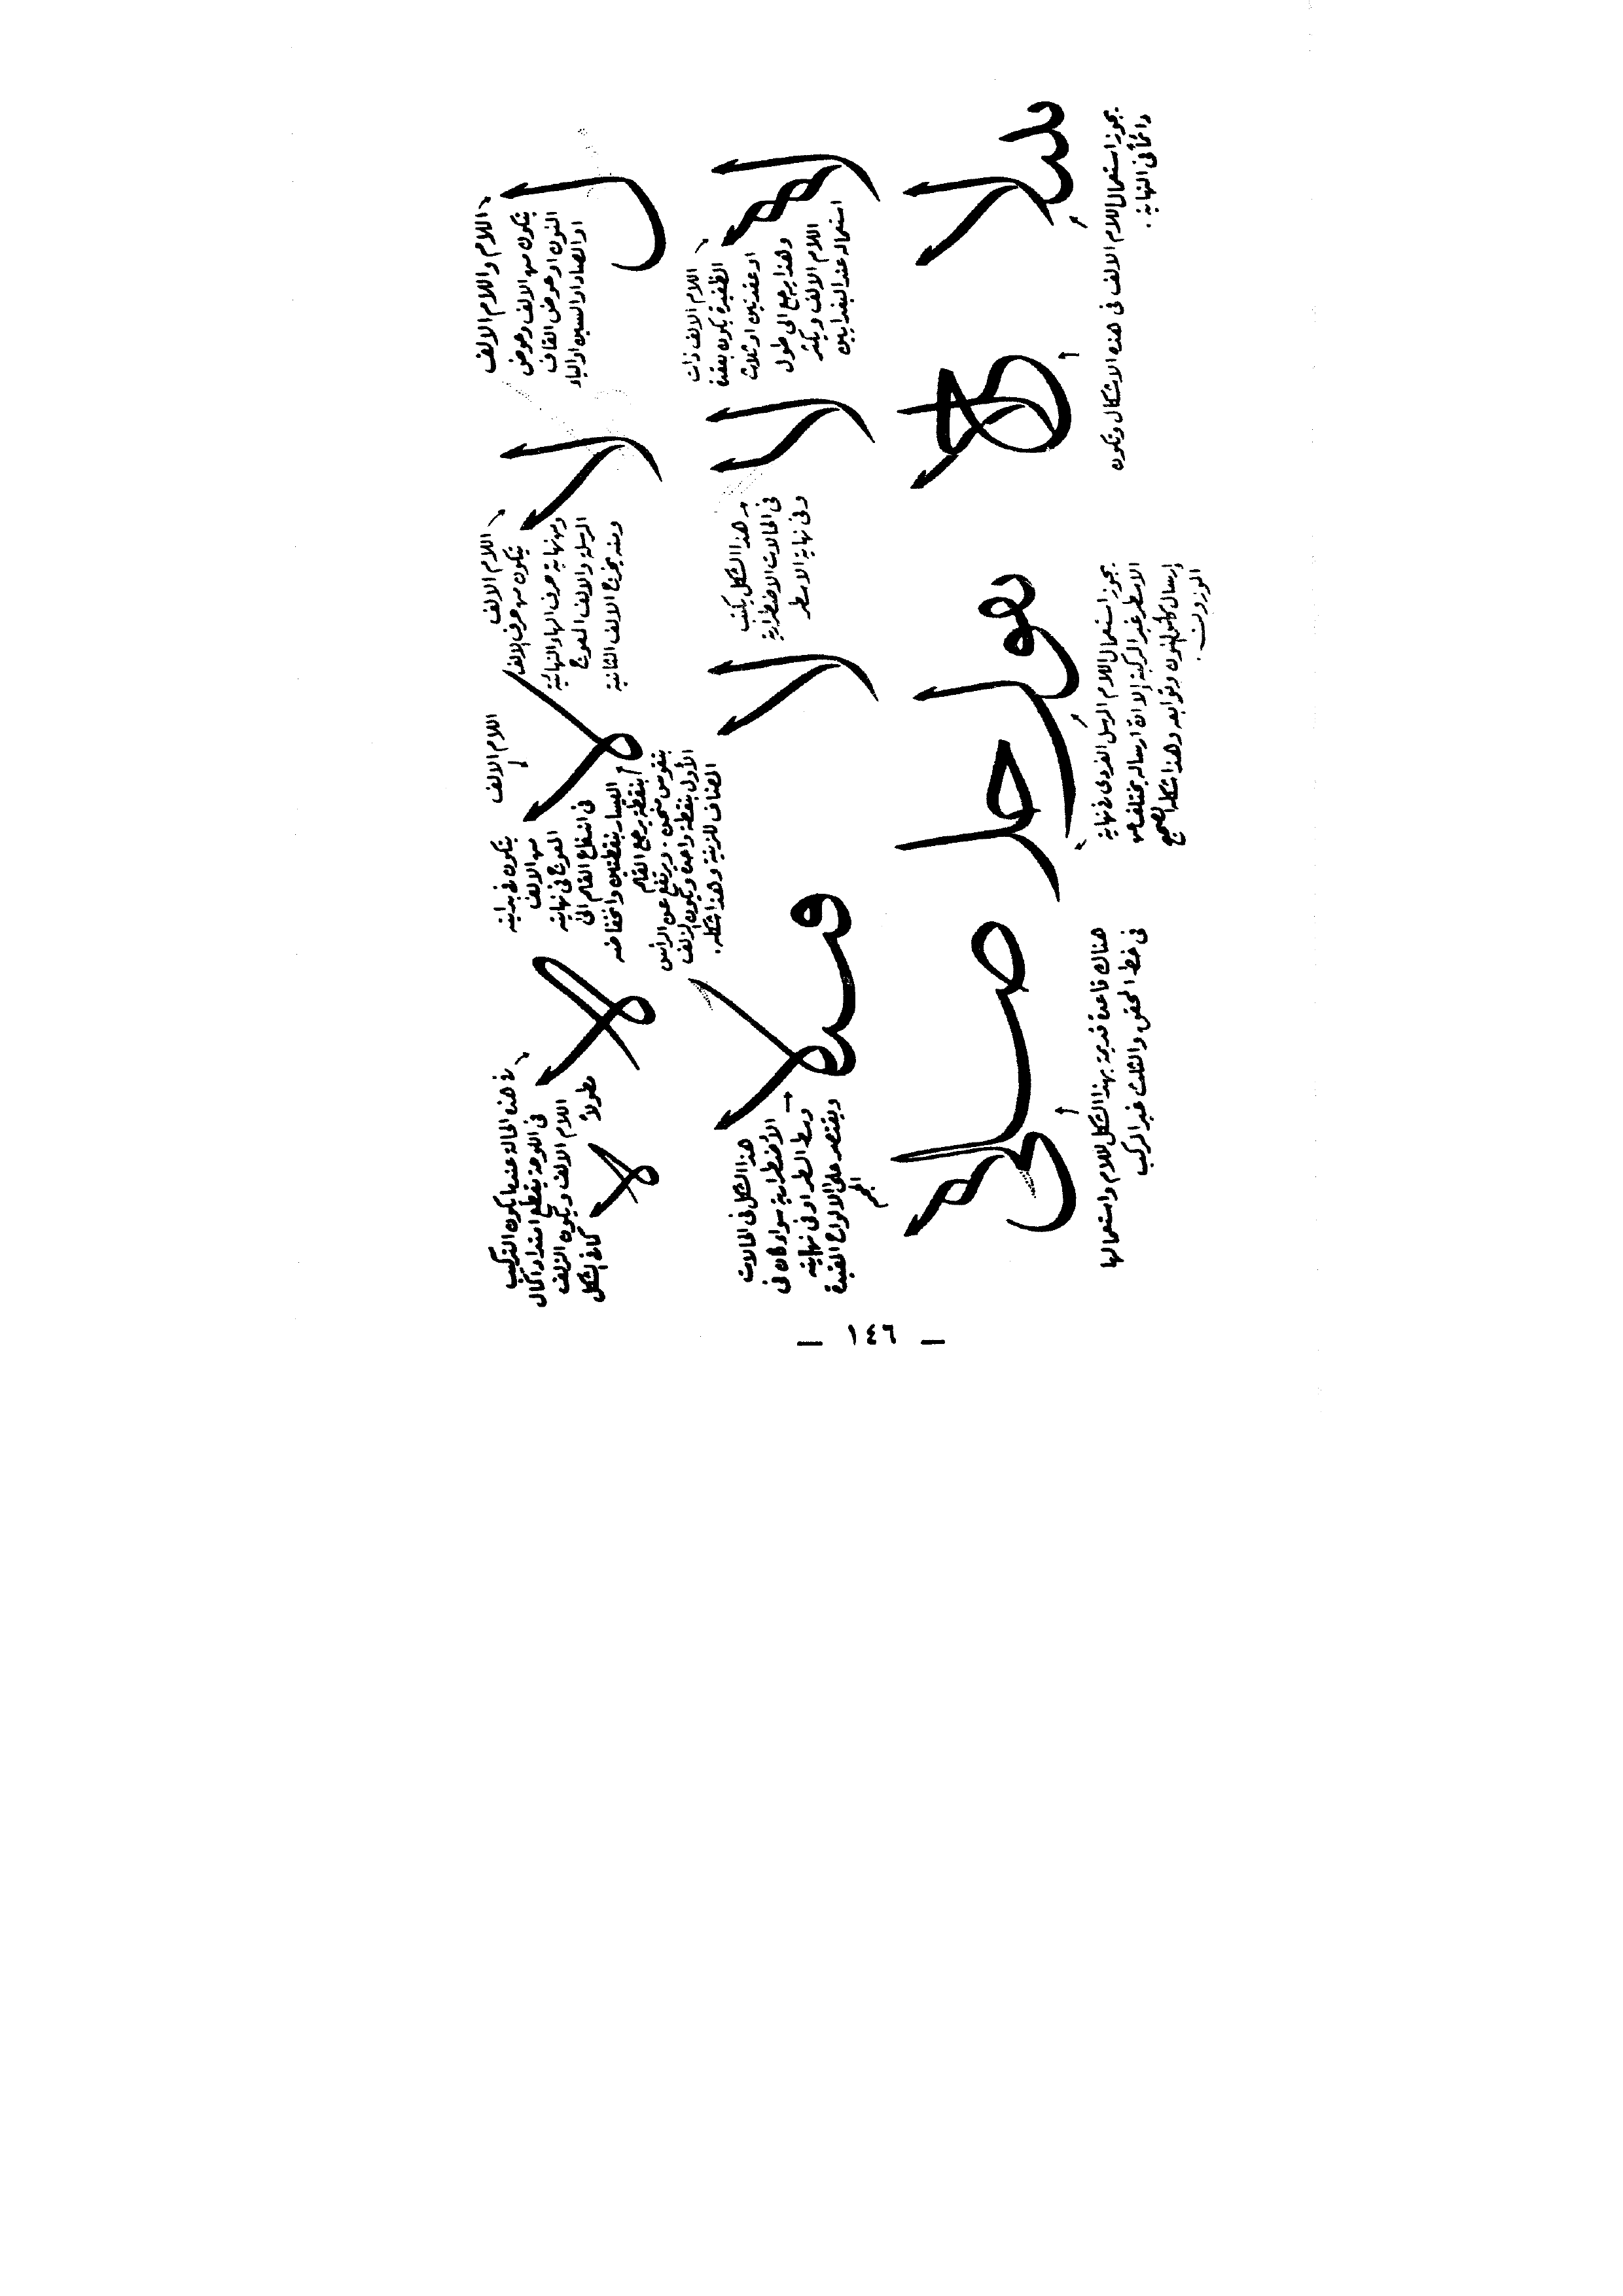 اللام واللام الالف
يتكون من الالف وحوض
النون او حوض القاف
او الصاد او السين او الياء
ل
اللام الالف
يتكون من حرف الالف
ومن نهاية حرف الهاء النهائية
المرسلة والالف المعوج
ومنه يخرج الالف الثانية
لا
اللام الالف
يتكون في بدايته
من الالف
المعوج في نهايته
في اندفاع القلم الى
اليسار بنقطتين وانخفاضه
بنقطة يرجع القلم
بتقوس منحن ويرتفع عن الرأس
الأول بنقطة واحدة ويكون الزلف
المضاف للزينة وهذا شكله.
لا
في هذه الحالة عندما يكون التركيب
في اللوحة يقطع امتداد اكمال
اللام الالف ويكون الزلف مطولاً
كما في الشكل
لا
لا
اللام الالف ذات
الظفيرة يكون بعقدة
او عقدتين او ثلاث
وهذا يرجع الى طول
اللام الالف ويكثر
استعماله عند البغداديين
لا
هذا الشكل يكتب
في الحالات الاضطرارية
وفي نهاية الاسطر
لا
لا
هذا الشكل في الحالات
الأضطرارية سواء كان في
وسط السطر او في نهايته
ويقتصر على الالواح المقيدة
بحجم
يجوز استعمال اللام الالف في هذه الاشكال وتكون
دائماً في النهاية.
يجوز استعمال اللام المرسل الفردي في نهاية
الاسطر غير المركبة إلا ان ارساله يختلف عن
إرسال كأس النون وتوابعه وهذا شكله الصحيح
الموزون.
هناك قاعدة قديمة بهذا الشكل للام واستعمالها
في خط المحقق والثلث غير المركب
— ١٤٦ —